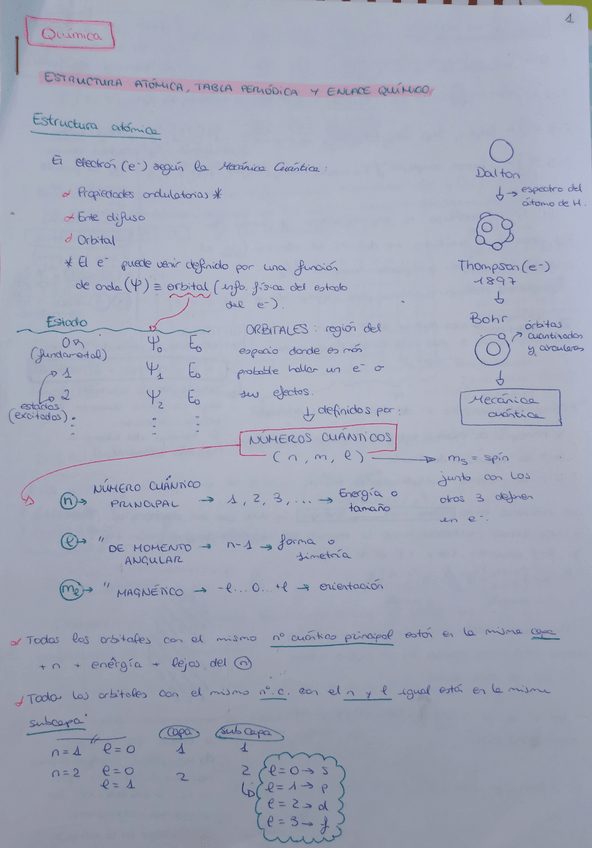 1
Química
ESTRUCTURA ATÓMICA, TABLA PERIÓDICA Y ENLACE QUÍMICO
Estructura atómica
El electrón (e⁻) según la Mecánica Cuántica:
Propiedades ondulatorias *
Ente difuso
Orbital
* El e⁻ puede venir definido por una función
de onda (Ψ) ≡ orbital (info. física del estado
del e⁻).
Dalton
→ espectro del
átomo de H.
Thompson (e⁻)
1897
Bohr
órbitas
cuantizadas
y circulares
Mecánica
cuántica
Estado
(fundamental) Ψ₀ E₀
1 Ψ₁ E₀
2 Ψ₂ E₀
estados
(excitados)
ORBITALES: región del
espacio donde es más
probable hallar un e⁻ o
sus efectos.
↓ definidos por:
NÚMEROS CUÁNTICOS
(n, m, l) → ms = spin
junto con los
otros 3 definen
un e⁻.
n → NÚMERO CUÁNTICO
PRINCIPAL → 1, 2, 3, ... → Energía o
tamaño
l → " DE MOMENTO → n-1 → forma o
ANGULAR simetría
ml → " MAGNÉTICO → -l...0...+l → orientación
Todos los orbitales con el mismo nº cuántico principal están en la misma capa
+ n + energía + lejos del n
Todos los orbitales con el mismo nº. c. con el n y l igual están en la misma
subcapa
capa subcapa
n=1 l=0 1 1
n=2 l=0 2 2
l=1
l=0 → s
l=1 → p
l=2 → d
l=3 → f